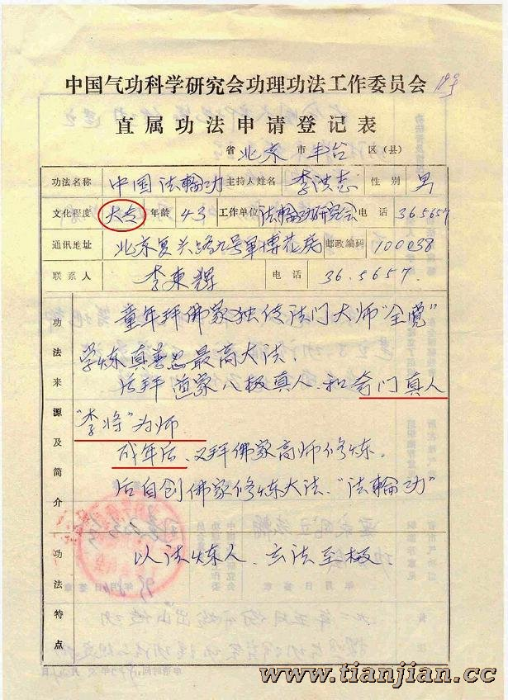 中国气功科学研究会功理功法工作委员会
直属功法申请登记表
省 北京 市 丰台 区（县）
功法名称 中国法輪功 主持人姓名 李洪志 性别 男
文化程度 大专 年龄 43 工作单位 法輪功研究会 电话 365657
通讯地址 北京复兴路九号军博花房 邮政编码 100038
联系人 李東輝 电话 36.5657
功法来源及简介
童年拜佛家独传法门大师"全觉"
学炼真善忍最高大法；
后拜道家八极真人、和奇门真人
"李将"为师
成年后、又拜佛家高师修炼.
后自创佛家修炼大法、"法輪功"
功法特点
以法炼人、玄法至极.
www.tianjian.cc